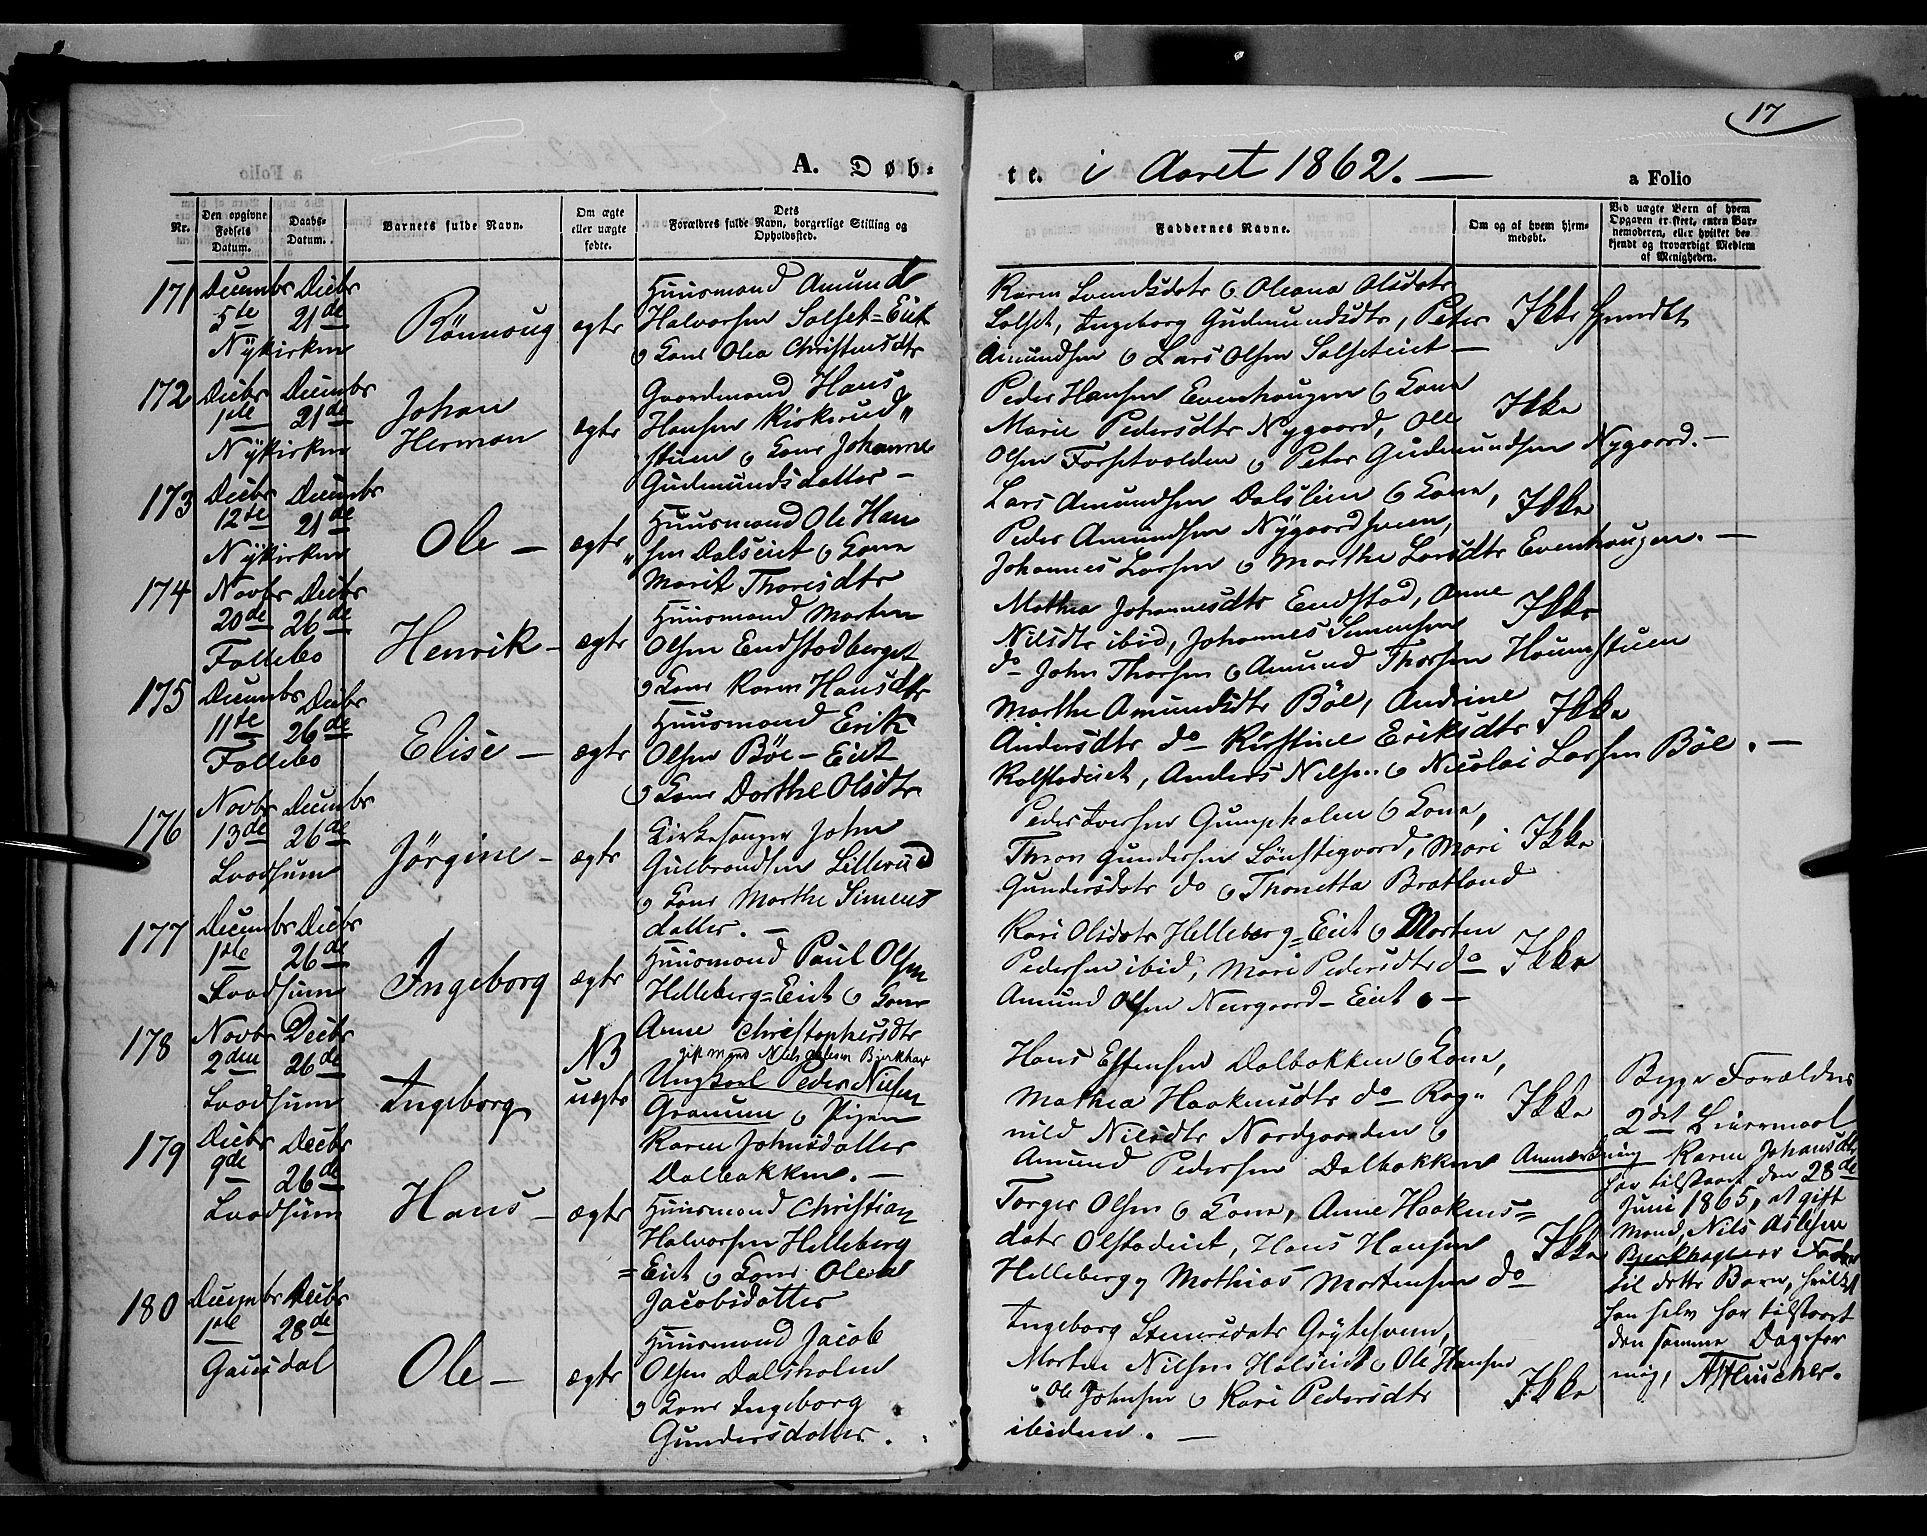 17
A. Døb-
te. i Aaret 1862. —
a Folio
Nr.
Den opgivne Fødsels Datum.
Daabs-Datum.
Barnets fulde Navn.
Om ægte eller uægte fødte.
Dets Forældres fulde Navn, borgerlige Stilling og Opholdssted.
Faddernes Navne.
Om og af hvem hjemmedøbt.
Ved uægte Børn af hvem Opgaven er skeet, enten Barnemoderen, eller hvilket bekjendt og troværdigt Medlem af Menigheden.
171
Decembr Decbr
5te 21de
Nykirken
Rönnoug
ægte
Huusmand Amund
Halvorsen Solset=Eiet
o Kone Olea Christensdtr
Karen Svendsdatr o Oleana Olsdatr
Solset, Ingeborg Gudmundsdtr, Peter
Amundsen o Lars Olsen Solseteiet —
Ikke
172
Decbr Decembr
1ste 21de
Nykirken
Johan
Herman
ægte
Gaardmand Hans
Hansen Kirkerud"
stuen o Kone Johanne
Gudmundsdatter —
Peder Hansen Evenhaugen o Kone
Marie Pedersdtr Nygaard, Ole
Olsen Forsetvolden o Peter Gudmundsen Nygaard. —
Ikke
173
Decbr Decembr
12te 21de
Nykirken
Ole —
ægte
Huusmand Ole Han
"sen Dalseiet o Kone
Marit Thoresdtr
Lars Amundsen Dalslien o Kone,
Peder Amundsen Nygaardsveen,
Johannes Larsen o Marthe Larsdtr Evenhaugen. —
Ikke
174
Novbr Decbr
20de 26de
Follebo
Henrik —
ægte
Huusmand Morten
Olsen Endstadberget
o Kone Karen Hansdtr
Mathea Johannesdtr Endstad, Anne
Nilsdtr ibid, Johannes Simensen
do John Thorsen o Amund Thorsen Haumstuen
Ikke
175
Decembr Decbr
11te 26de
Follebo
Elise —
ægte
Huusmand Erik
Olsen Böe — Eiet
o Kone Dorthe Olsdtr
Marthe Amundsdtr Böe, Andrine
Andersdtr do Kirstine Eriksdtr
Kolstadeiet, Anders Nilsen o Nicolai Larsen Böe. —
Ikke
176
Novbr Decembr
13de 26de
Svadsum
Jörgine —
ægte
Kirkesanger John
Gulbrandsen Lillerud
o Kone Marthe Simens
datter. —
Peder Iversen Gumpholen o Kone,
Thron Gundersen Lönstigaard, Mari
Gundersdatr do o Thonetta Bratland
Ikke
177
Decembr Decbr
1ste 26de
Svadsum
Ingeborg
ægte
Huusmand Paul Olsen
Helleberg=Eiet o Kone
Anne Christophersdtr
Kari Olsdatr Helleberg=Eiet o Morten
Pedersen ibid, Mari Pedersdtr do
Amund Olsen Neergaard — Eiet. —
Ikke
178
Novbr Decbr
2den 26de
Svadsum
Ingeborg
NB
uægte
gift Mand Nils Aslesen Bjerkhag
Ungkarl Peder Nilsen
Granum o Pigen
Karen Johnsdatter
Dalbakken. —
Hans Estensen Dalbakken o Kone,
Mathea Haakensdtr do Rag"
nild Nilsdtr Nordgaarden o
Amund Pedersen Dalbakken
Ikke
Begge Forældres
2det Leiermaal
Anmærkning Karen Johansdtr
har tilstaaet den 28de
Juni 1865, at gift
Mand, Nils Aslesen
Bjerkhagen er Fader
til dette Barn, hvilket
han selv har tilstaaet
den samme Dag for
mig,
179
Decbr Decbr
9de 26de
Svadsum
Hans —
ægte
Huusmand Christian
Halvorsen Helleberg
=Eiet o Kone Olea
Jacobsdatter
Torger Olsen o Kone, Anne Haakens=
datr Olstadeiet, Hans Hansen
Helleberg, Mathias Mortensen do
Ikke
180
Decembr Decbr
1ste 28de
Gausdal
Ole —
ægte
Huusmand Jacob
Olsen Dalsholen
o Kone Ingeborg
Gundersdatter.
Ingeborg Steensdatr Gröytesveen,
Morten Nilsen Holseiet o Ole Hansen
" Ole Johnsen o Kari Pedersdtr
ibidem. —
Ikke